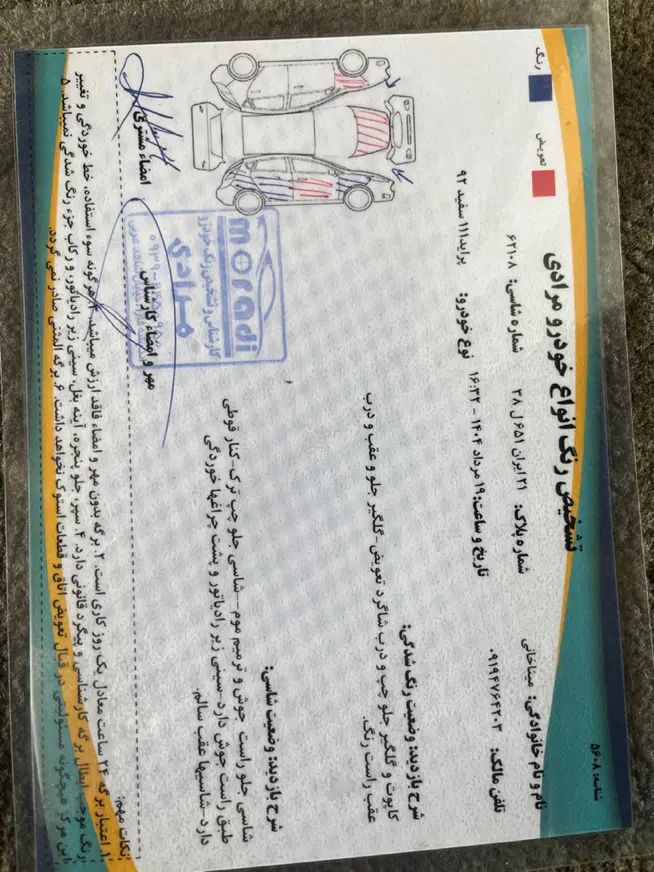 شناسه: ۵۶۰۸
رنگ
تعویض
تشخیص رنگ انواع خودرو مرادی
نام و نام خانوادگی: میناخانی
شماره پلاک: ۲۱ ایران ۶۵۱ ل ۳۸
شماره شاسی: ۶۲۱۰۸
تلفن مالک: ۰۹۱۹۴۷۶۴۲۰۳
تاریخ و ساعت: ۱۹ مرداد ۱۴۰۴ - ۱۶:۳۲
نوع خودرو: پراید۱۱۱ سفید ۹۲
شرح بازدید: وضعیت رنگ شدگی:
کاپوت و گلگیر جلو چپ و درب شاگرد تعویض-گلگیر جلو و عقب و درب
عقب راست رنگ.
شرح بازدید: وضعیت شاسی:
شاسی جلو راست جوش و ترمیم موم-شاسی جلو چپ ترک-کنار قوطی
طبق راست جوش دارد-سینی زیر رادیاتور و پشت چراغها خوردگی
دارد-شاسیها عقب سالم.
moradi
کارشناسی و تشخیص رنگ خودرو
مرادی
مهر و امضاء کارشناس
امضاء مشتری
نکات مهم:
۱. اعتبار برگه ۲۴ ساعت معادل یک روز کاری است. ۲. برگه بدون مهر و امضاء فاقد ارزش میباشد. ۳. هرگونه سوء استفاده، خط خوردگی و تغییر
رنگ موجب ابطال برگه کارشناسی و پیگرد قانونی دارد. ۴. سپر، جلو پنجره، آینه بغل، سینی زیر رادیاتور، و رکاب جزء رنگ شدگی نمیباشد. ۵.
این مرکز هیچگونه مسئولیتی در قبال تعویض اتاق و قطعات استوک نخواهد داشت. ۶. برگه المثنی صادر نمی گردد.